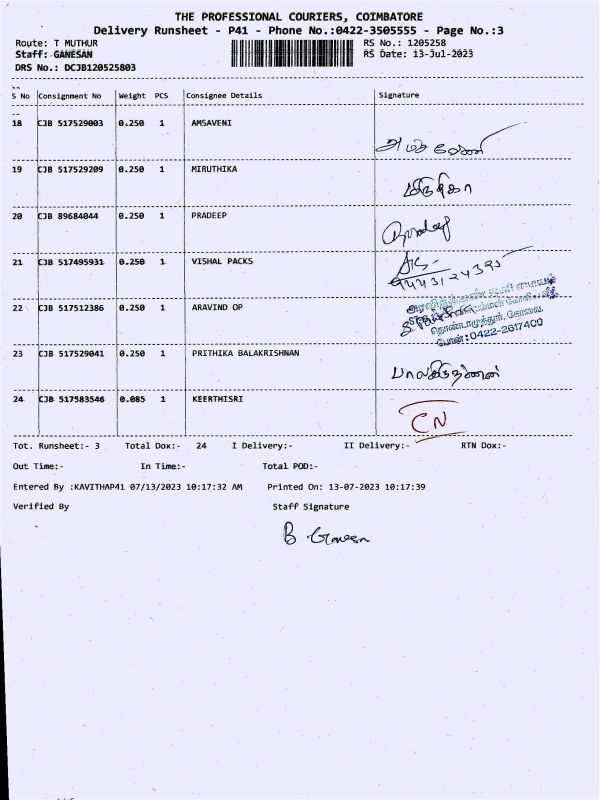 THE PROFESSIONAL COURIERS, COIMBATORE
Delivery Runsheet - P41 - Phone No.:0422-3505555 - Page No.:3
Route: T MUTHUR RS No.: 1205258
Staff: GANESAN RS Date: 13-Jul-2023
DRS No.: DCJB120525803
S No Consignment No Weight PCS Consignee Details Signature
18 CJB 517529003 0.250 1 AMSAVENI
19 CJB 517529209 0.250 1 MIRUTHIKA
மிருதிகா
20 CJB 89684044 0.250 1 PRADEEP
Pradeep
21 CJB 517495931 0.250 1 VISHAL PACKS
9443124395
22 CJB 517512386 0.250 1 ARAVIND OP
தொண்டாமுத்தூர், கோவை.
போன்: 0422-2617400
23 CJB 517529041 0.250 1 PRITHIKA BALAKRISHNAN
பாலகிருஷ்ணன்
24 CJB 517583546 0.085 1 KEERTHISRI
CN
Tot. Runsheet:- 3 Total Dox:- 24 I Delivery:- II Delivery:- RTN Dox:-
Out Time:- In Time:- Total POD:-
Entered By :KAVITHAP41 07/13/2023 10:17:32 AM Printed On: 13-07-2023 10:17:39
Verified By Staff Signature
B Ganesan